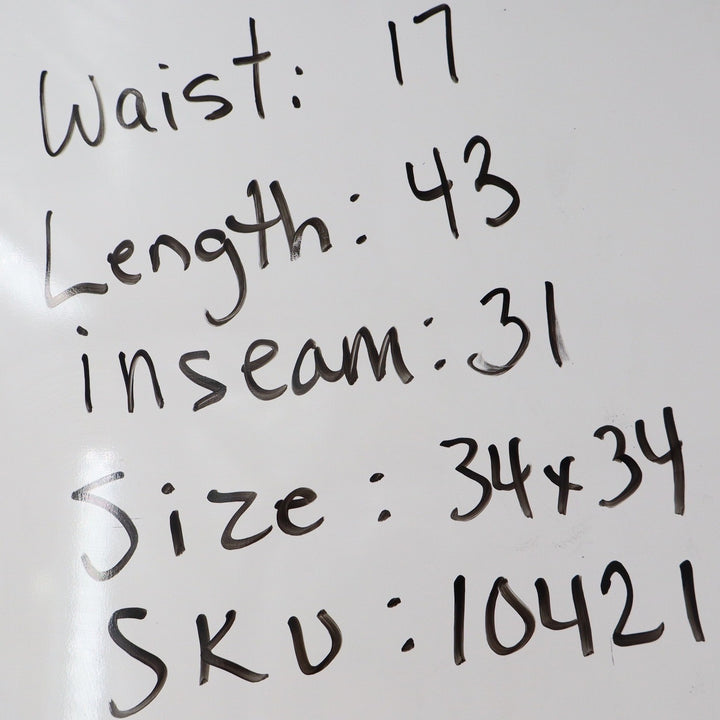 Waist: 17
Length: 43
inseam: 31
Size: 34x34
SKU: 10421